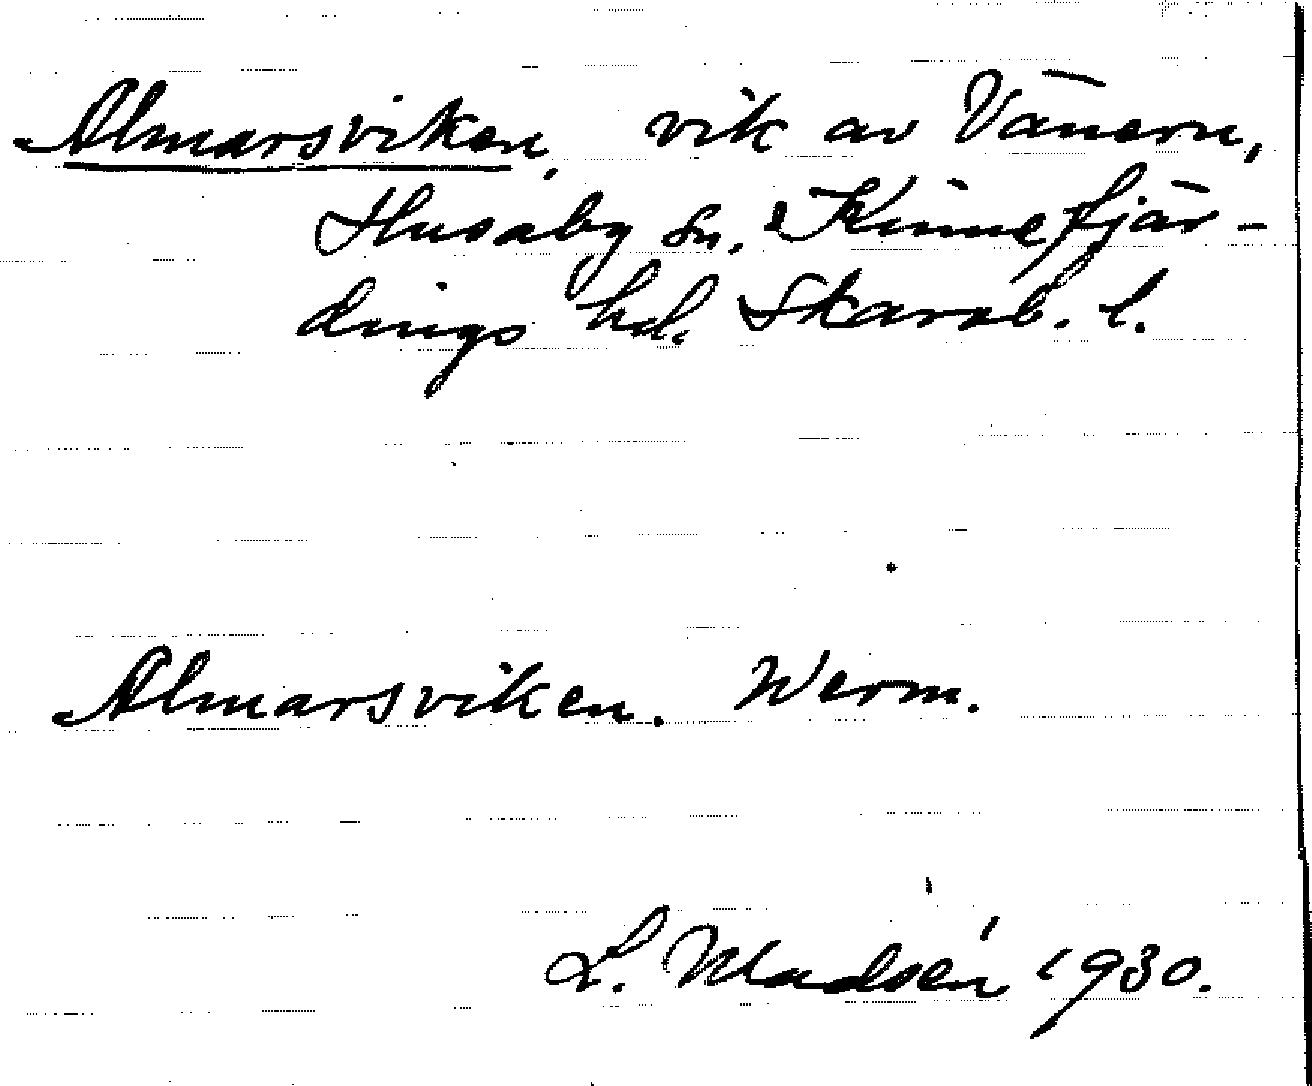 Almarsviken, vik av Vänern,
Husaby sn, Kinnefjär-
dings hd. Skarab. l.
Almarsviken. Werm.
L. Madsén 1930.